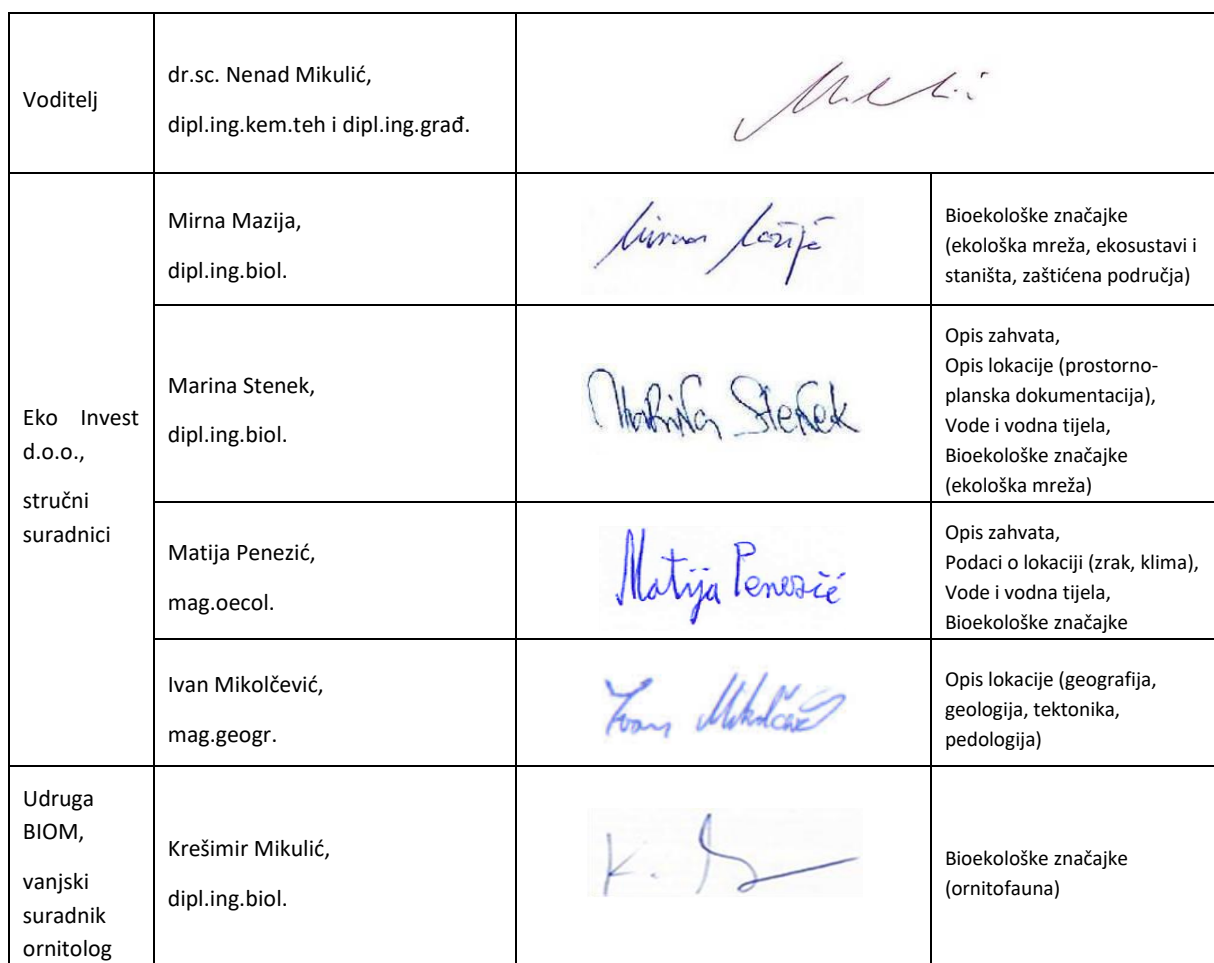 Voditelj
dr.sc. Nenad Mikulić,
dipl.ing.kem.teh i dipl.ing.građ.
Eko Invest
d.o.o.,
stručni
suradnici
Mirna Mazija,
dipl.ing.biol.
Bioekološke značajke
(ekološka mreža, ekosustavi i
staništa, zaštićena područja)
Marina Stenek,
dipl.ing.biol.
Marina Stenek
Opis zahvata,
Opis lokacije (prostorno-
planska dokumentacija),
Vode i vodna tijela,
Bioekološke značajke
(ekološka mreža)
Matija Penezić,
mag.oecol.
Matija Penezić
Opis zahvata,
Podaci o lokaciji (zrak, klima),
Vode i vodna tijela,
Bioekološke značajke
Ivan Mikolčević,
mag.geogr.
Ivan Mikolčević
Opis lokacije (geografija,
geologija, tektonika,
pedologija)
Udruga
BIOM,
vanjski
suradnik
ornitolog
Krešimir Mikulić,
dipl.ing.biol.
K.
Bioekološke značajke
(ornitofauna)